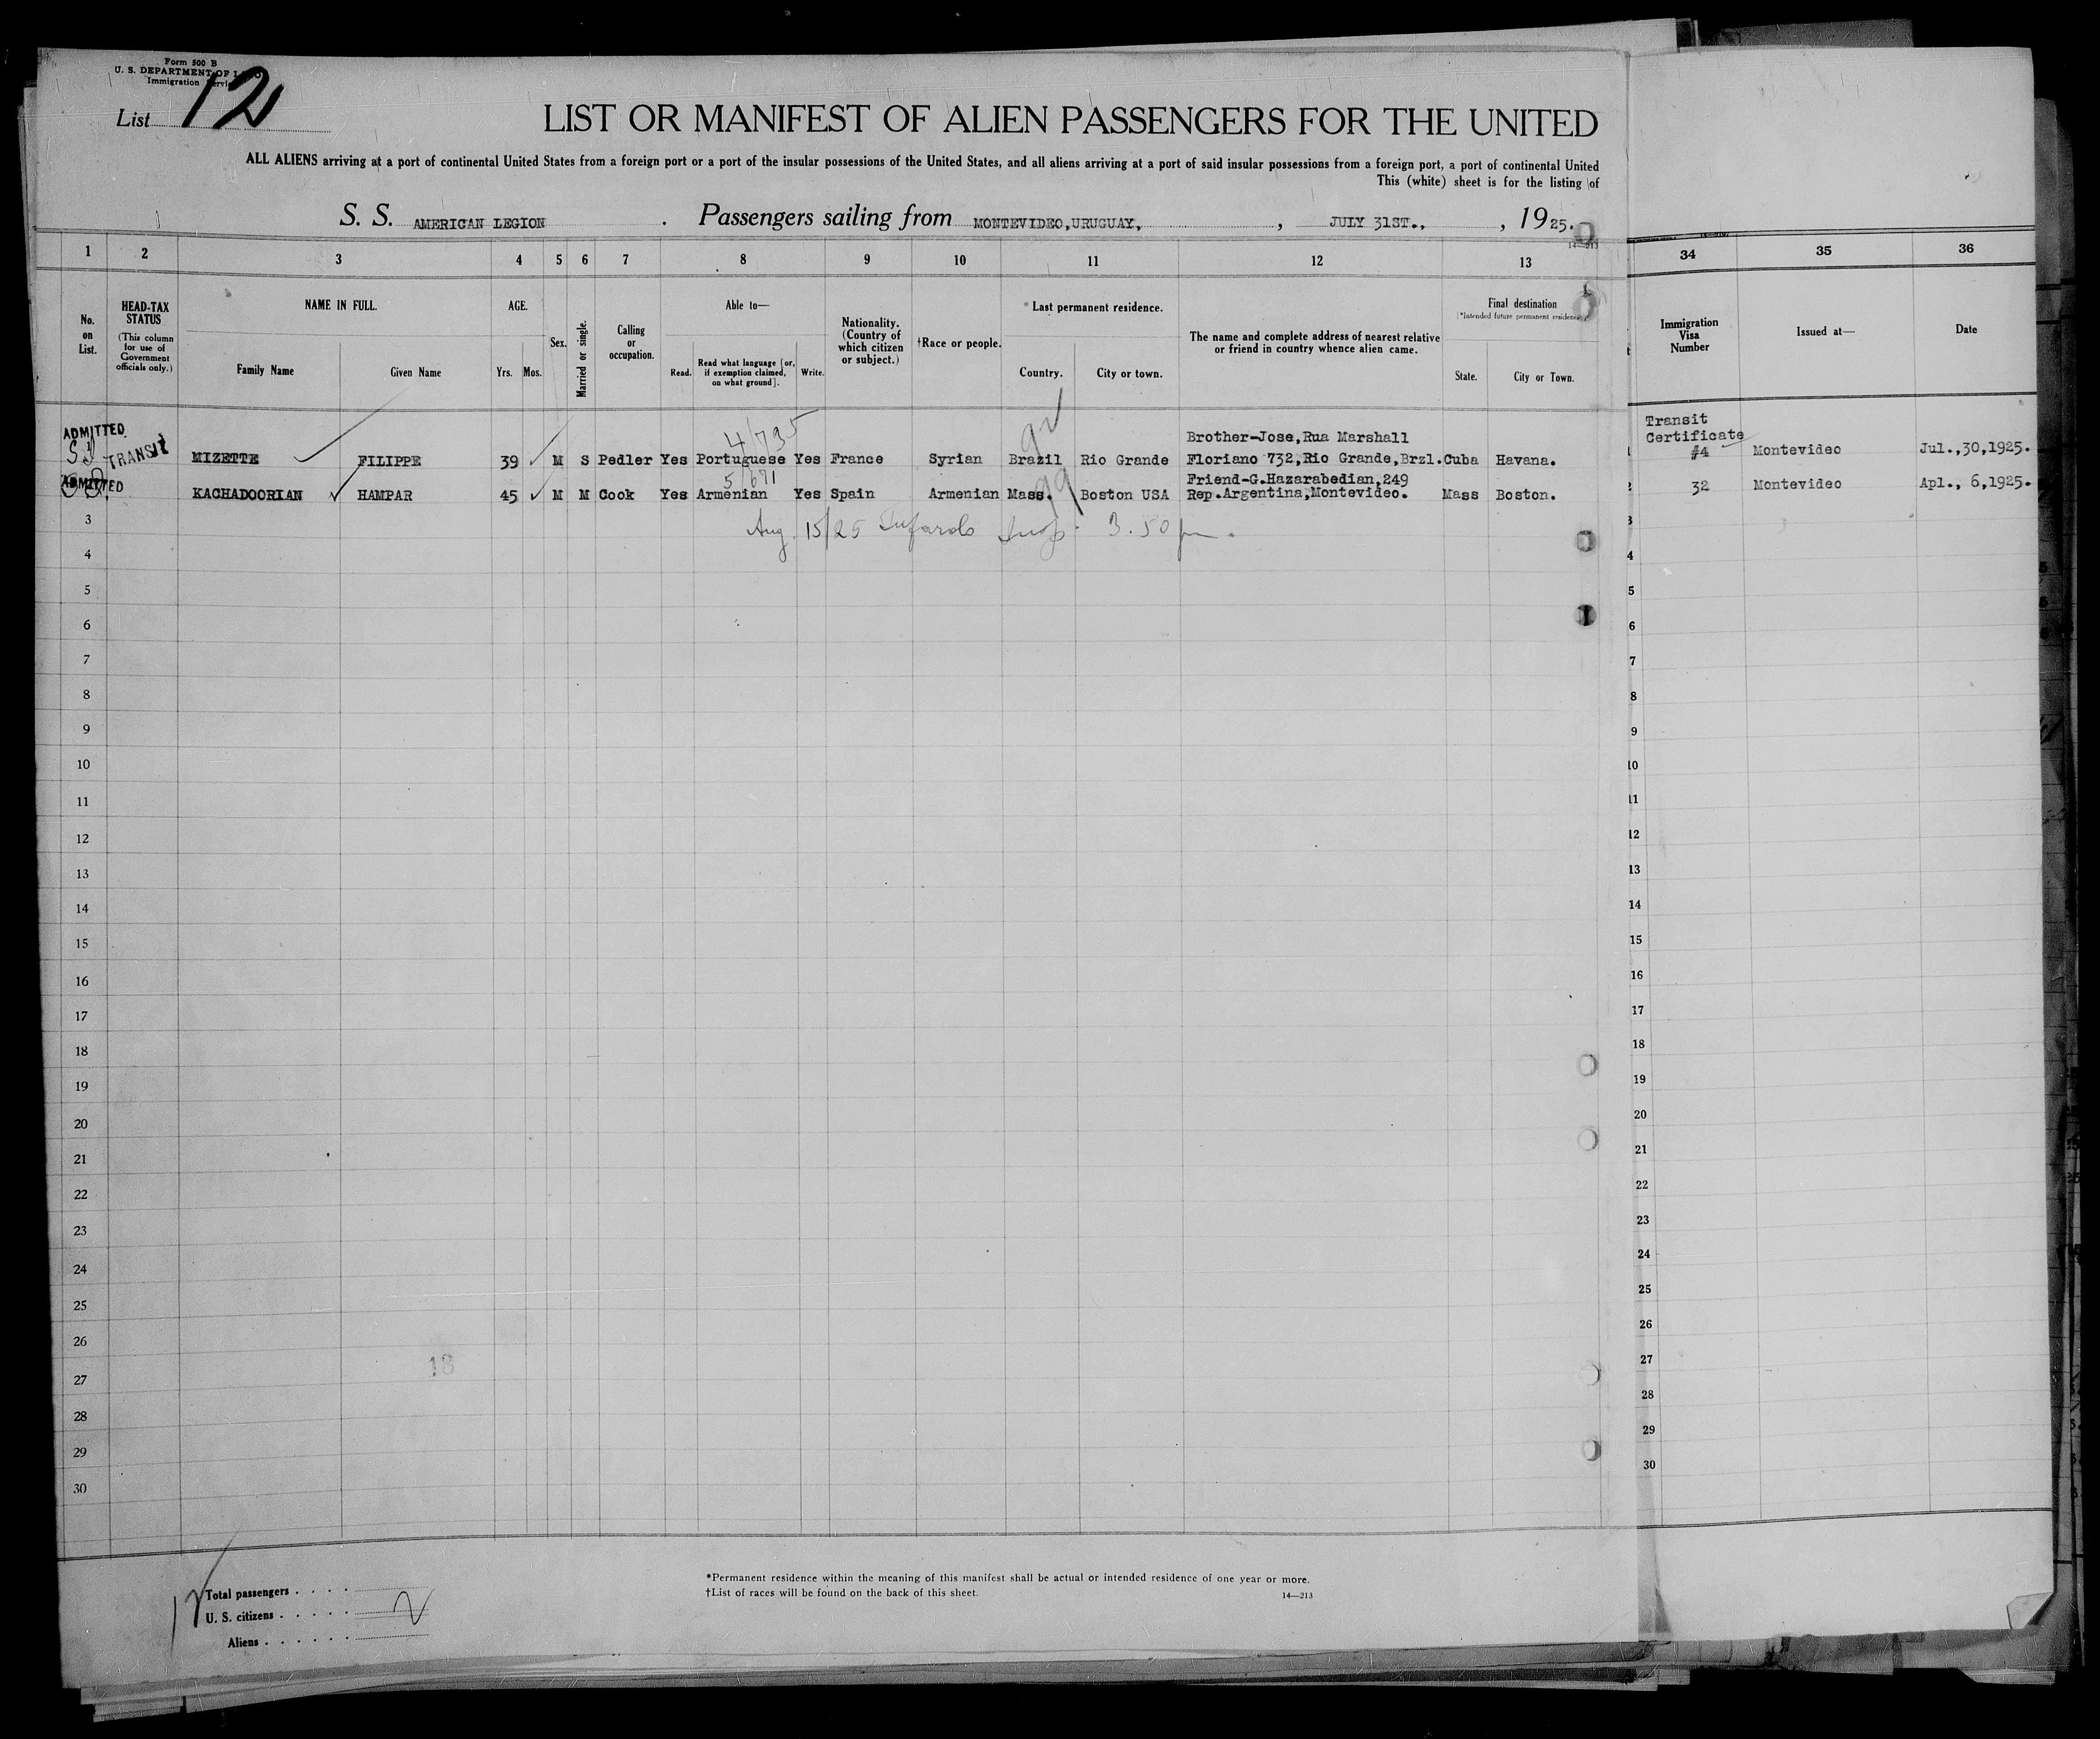 Form 500 B
U. S. DEPARTMENT OF
Immigration
List 12
LIST OR MANIFEST OF ALIEN PASSENGERS FOR THE UNITED
ALL ALIENS arriving at a port of continental United States from a foreign port or a port of the insular possessions of the United States, and all aliens arriving at a port of said insular possessions from a foreign port, a port of continental United
This (white) sheet is for the listing of
S. S. AMERICAN LEGION . Passengers sailing from MONTEVIDEO,URUGUAY, , JULY 31ST., , 1925.
14—213
1 2 3 4 5 6 7 8 9 10 11 12 13 34 35 36
No. on List.
HEAD-TAX STATUS
(This column for use of Government officials only.)
NAME IN FULL.
Family Name Given Name
AGE.
Yrs. Mos.
Sex.
Married or single.
Calling or occupation.
Able to—
Read. Read what language [or, if exemption claimed, on what ground]. Write.
Nationality. (Country of which citizen or subject.)
†Race or people.
* Last permanent residence.
Country. City or town.
The name and complete address of nearest relative or friend in country whence alien came.
Final destination
(*Intended future permanent residence)
State. City or Town.
Immigration Visa Number
Issued at—
Date
ADMITTED
TRANSIT
4/735
Brother-Jose,Rua Marshall
Transit
Certificate
MIZETTE FILIPPE 39 M S Pedler Yes Portuguese Yes France Syrian Brazil Rio Grande Floriano 732,Rio Grande,Brzl. Cuba Havana. #4 Montevideo Jul.,30,1925.
ADMITTED
5/671
Friend-G.Hazarabedian,249
KACHADOORIAN HAMPAR 45 M M Cook Yes Armenian Yes Spain Armenian Mass. Boston USA Rep.Argentina,Montevideo. Mass Boston. 32 Montevideo Apl., 6,1925.
Aug. 15/25 3.50 pm.
3 3
4 4
5 5
6 6
7 7
8 8
9 9
10 10
11 11
12 12
13 13
14 14
15 15
16 16
17 17
18 18
19 19
20 20
21 21
22 22
23 23
24 24
25 25
26 26
27 27
28 28
29 29
30 30
18
Total passengers
U. S. citizens
Aliens
*Permanent residence within the meaning of this manifest shall be actual or intended residence of one year or more.
†List of races will be found on the back of this sheet. 14—213